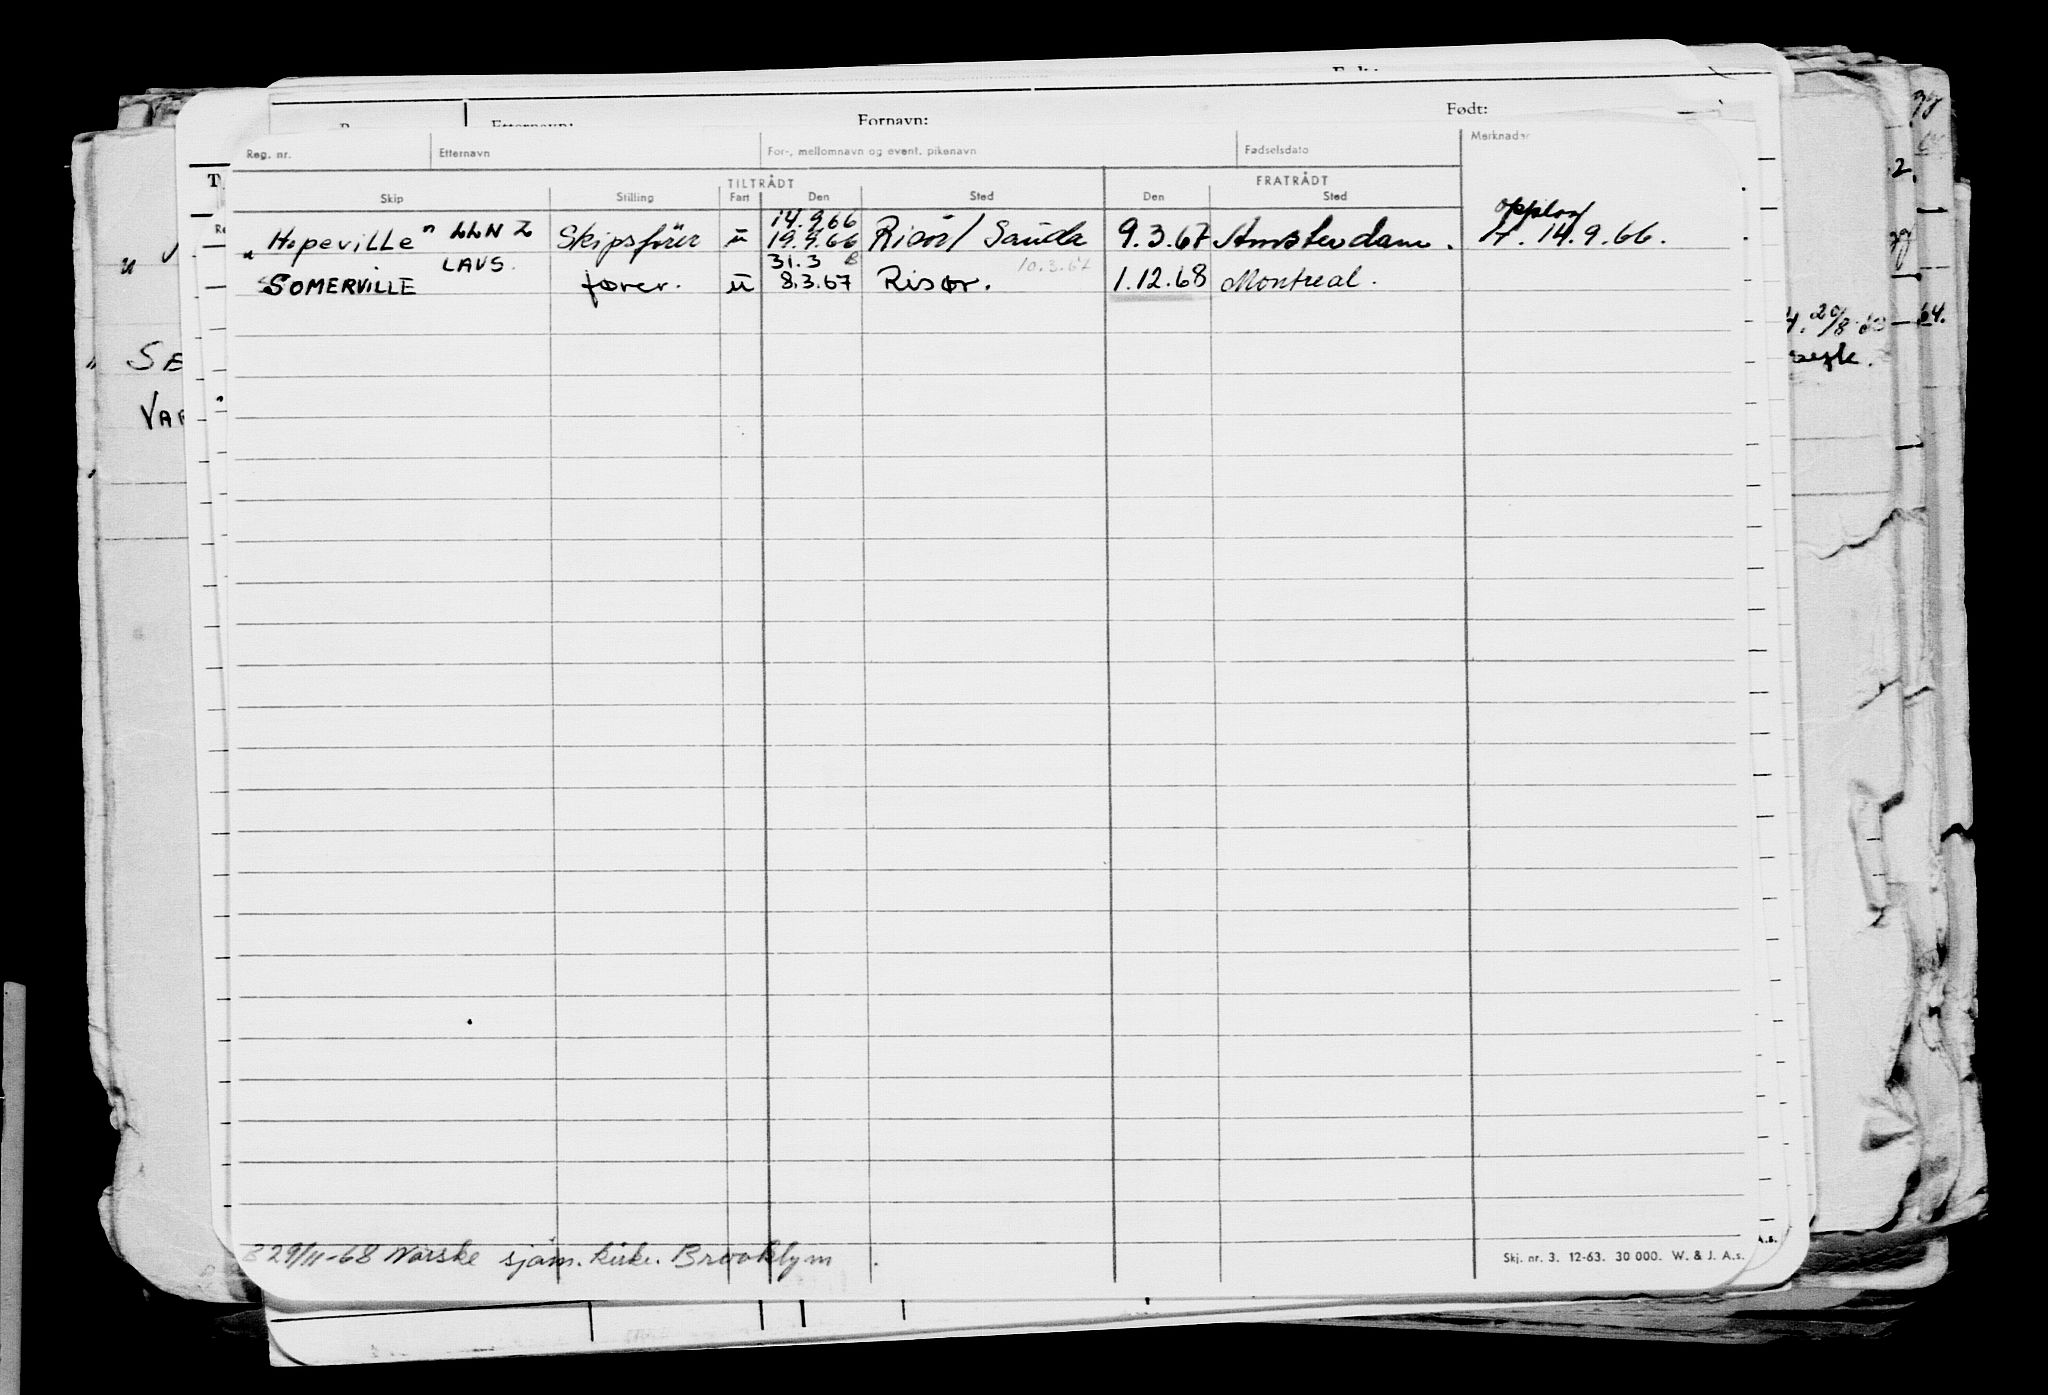 Født:
Fornavn:
Etternavn:
Reg. nr. Etternavn For-, mellomnavn og event. pikenavn Fødselsdato Merknader
TILTRÅDT FRATRÅDT
Skip Stilling Fart Den Sted Den Sted
14.9.66 opplest
"Hopeville" LLNZ Skipsfører u 19.9.66 Risör/ Sauda 9.3.67 Amsterdam. 14.9.66.
LAVS. 31.3 B 10.3.67
SOMERVILLE fører. u 8.3.67 Risør. 1.12.68 Montreal.
SE
VAR
29/8
64.
B 29/11-68 Norske sjøm. kirke. Brooklyn
Skj. nr. 3. 12-63. 30 000. W. & J. A.s.
A.s.